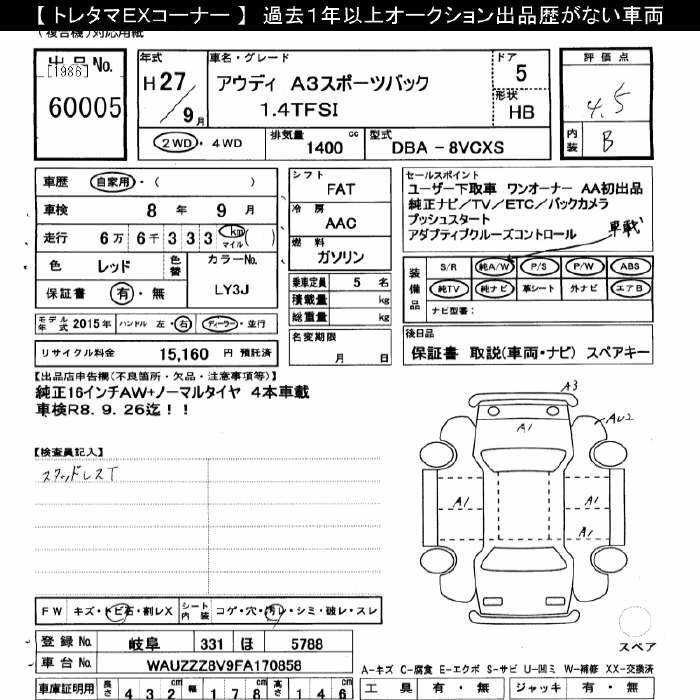 【 トレタマEXコーナー 】 過去１年以上オークション出品歴がない車両
(複合機)対応用紙
出品 No.
[1986]
60005
年式
H 27 / 9月
車名・グレード
アウディ A3スポーツバック
1.4TFSI
ドア
5
形状
HB
評価点
4.5
内装 B
2WD・4WD
排気量 1400 cc
型式 DBA - 8VCXS
車歴 自家用・( )
車検 8 年 9 月
走行 6万 6千 3 3 3 km マイル ( )
色 レッド 色替
カラーNo.
LY3J
保証書 有・無
シフト
FAT
冷房
AAC
燃料
ガソリン
乗車定員 5 名
積載量 kg
総重量 kg
名変期限
月 日
セールスポイント
ユーザー下取車 ワンオーナー AA初出品
純正ナビ／TV／ETC／バックカメラ
プッシュスタート
アダプティブクルーズコントロール
車載
装備品
S/R 純A/W P/S P/W ABS
純TV 純ナビ 革シート 外ナビ エアB
ナビ型番：
モデル年式 2015年 ハンドル 左・右 ディーラー・並行
リサイクル料金 15,160 円 預託済
後日品
保証書 取説(車両・ナビ) スペアキー
【出品店申告欄(不良箇所・欠品・注意事項等)】
純正16インチAW+ノーマルタイヤ 4本車載
車検R8.9.26迄！！
【検査員記入】
スタッドレスT
A3
A1
AU2
A1
A1
A1
スペア
FW キズ・トビ石・割レX
シート内装 コゲ・穴・汚レ・シミ・破レ・スレ
登録 No. 岐阜 331 ほ 5788
車台 No. WAUZZZ8V9FA170858
A-キズ C-腐食 E-エクボ S-サビ U-凹ミ W-補修 XX-交換済
車庫証明用 長さ 4 3 2 cm 幅 1 7 8 cm 高さ 1 4 6 cm
工具 有・無 ジャッキ 有・無